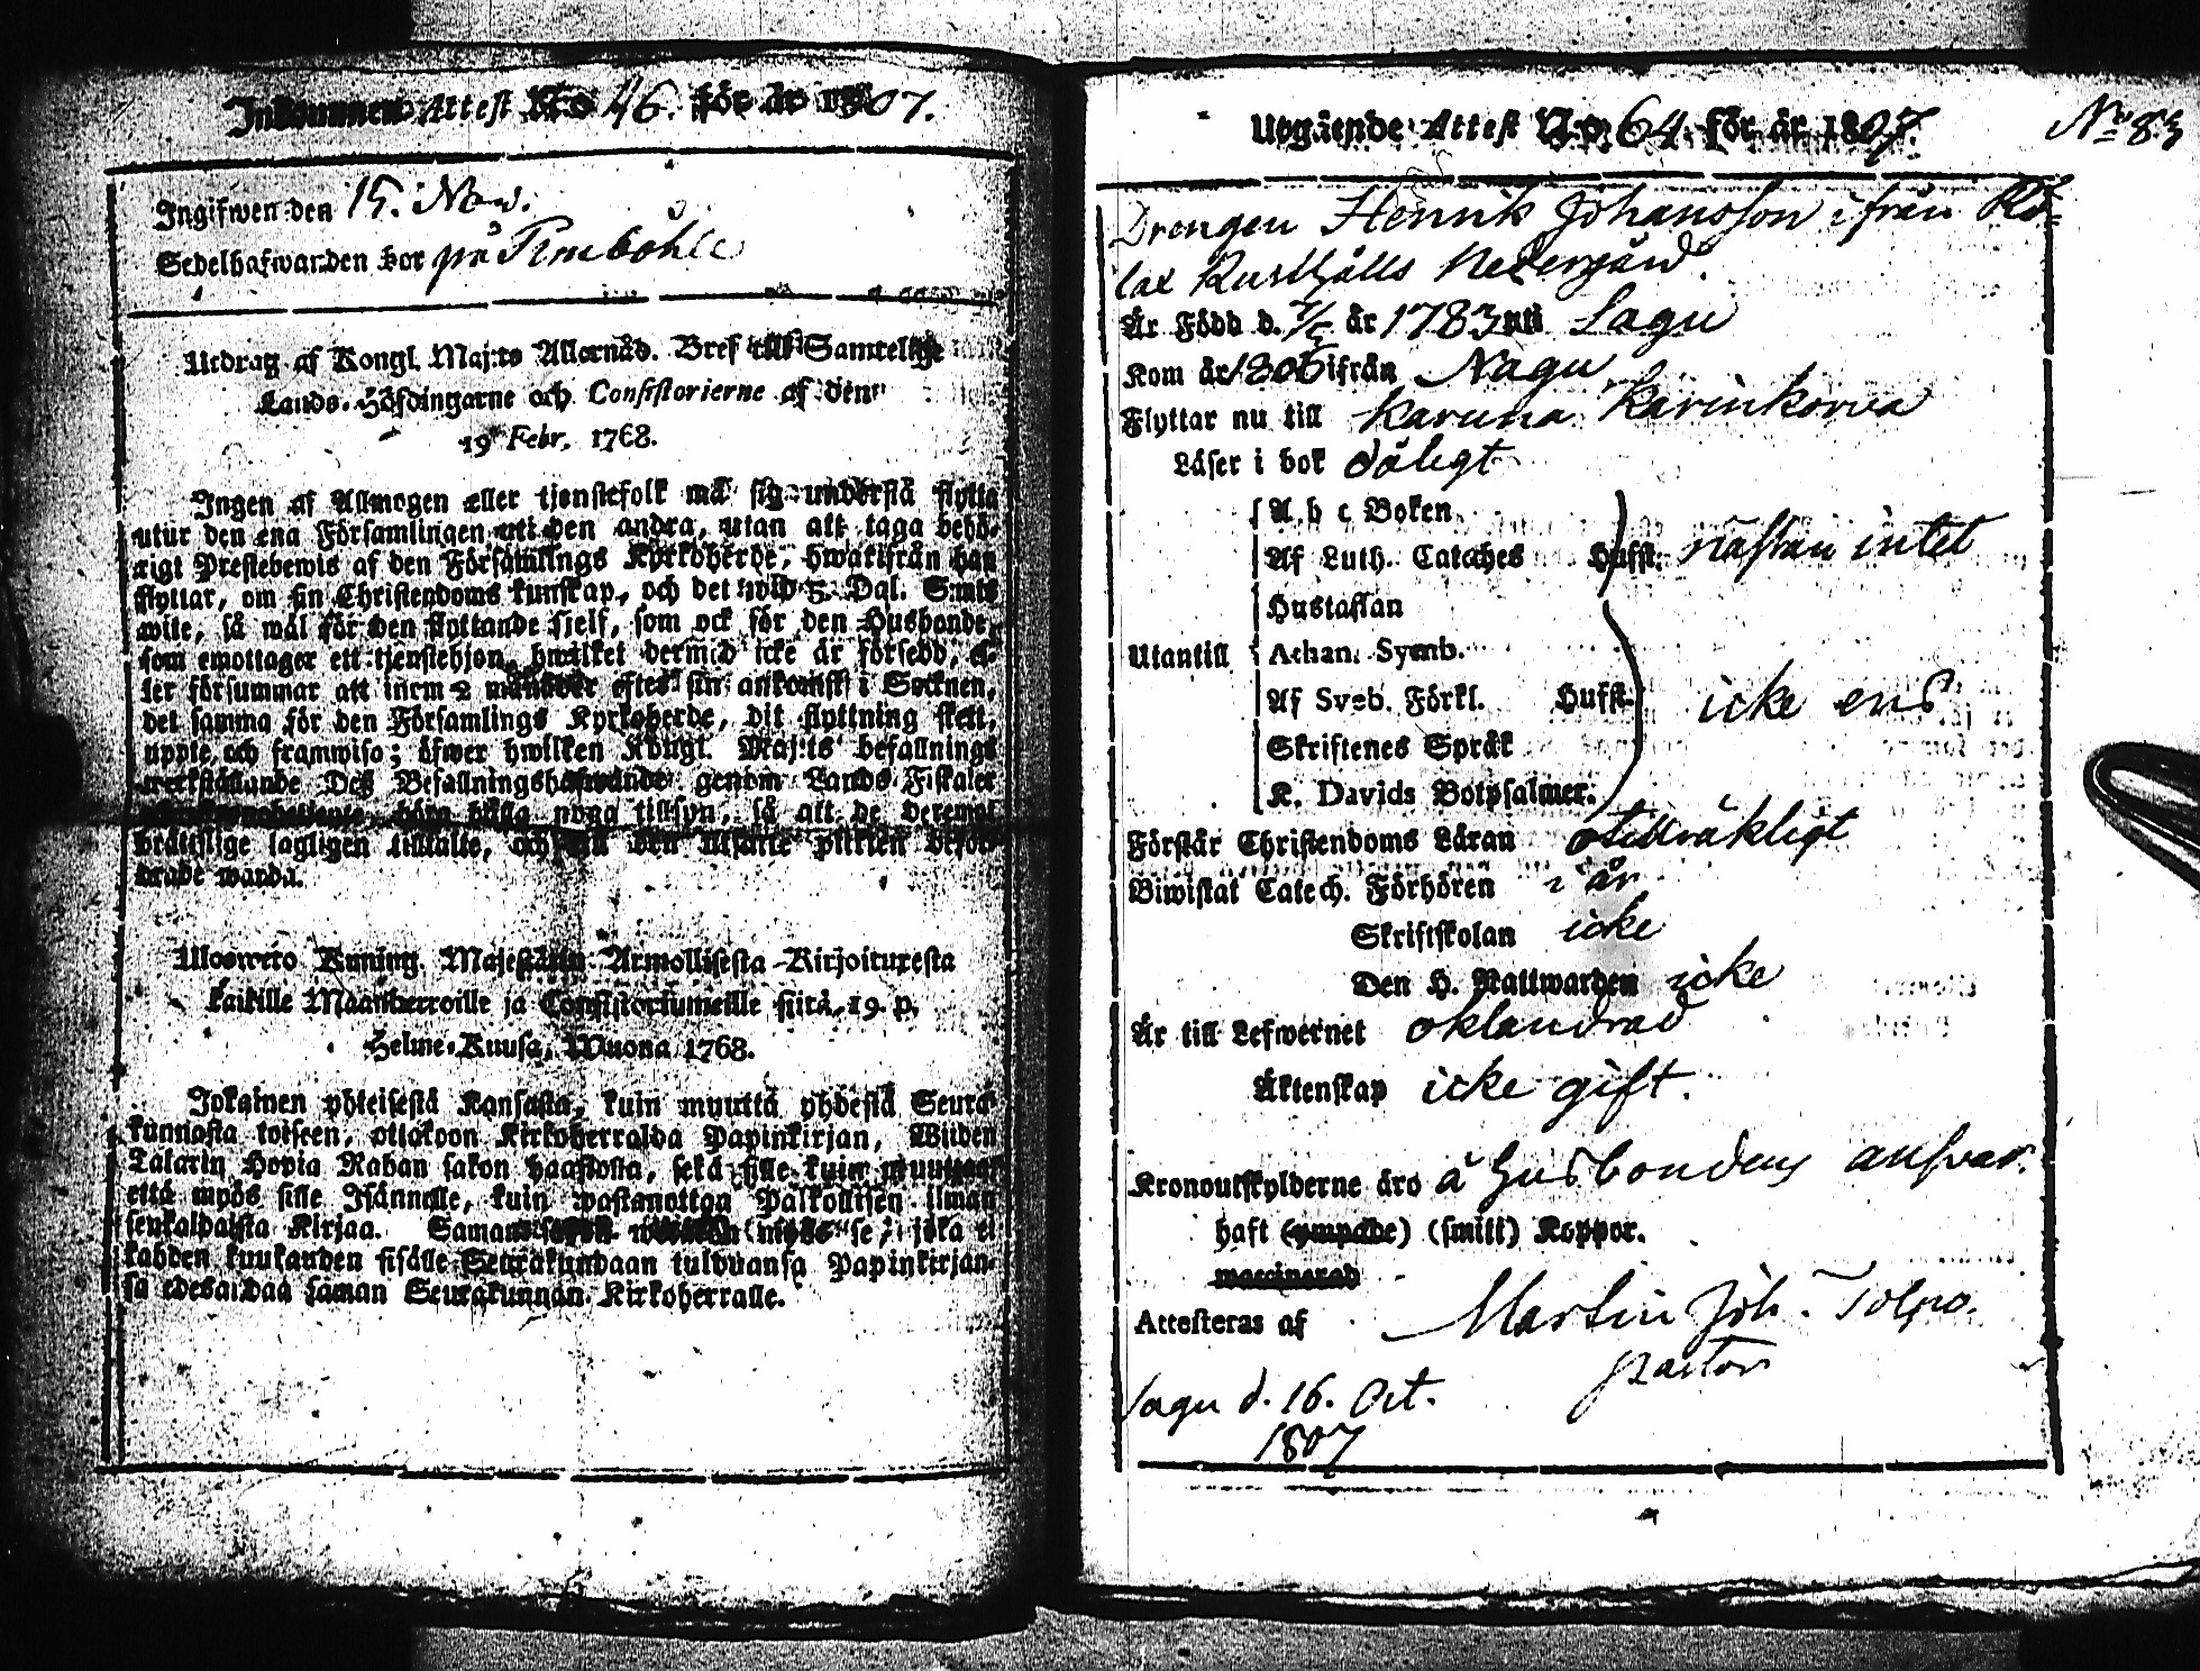 Inkommen Attest No 46. för år 1807.
Ingifwen den 15. Nov.
Sedelhafwanden bor på Pemböhle
Utdrag af Kongl. Maj:ts Allernåd. Bref till Samtellige
Lands-Höfdingarne och Consistorierne af den
19 Febr. 1768.
Ingen af Allmogen eller tjenstefolk må sig understå flytta
utur den ena Församlingen uti den andra, utan att taga behö-
rigt Prestebewis af den Församlings Kyrkoherde, hwarifrån han
flyttar, om sin Christendoms kunskap, och det wid 5. Dal. S:mts
wite, så wäl för den flyttande sjelf, som ock för den Husbonde,
som emottager ett tjenstehjon, hwilket dermed icke är försedd, el-
ler försummar att inom 2 månader efter sin ankomst i Socknen,
det samma för den Församlings Kyrkoherde, dit flyttning skett,
uppte och framwisa; öfwer hwilken Kongl. Maj:ts befallnings
werkställande Des Befallningshafwande genom Lands Fiskaler
böra hålla noga tillsyn, så att de deremot
brättslige lagligen tilltalte, och till den utsatte plikten befor-
drade warda.
Ulosweto Kuning. Majestätin Armollisesta Kirjoituxesta
kaikille Maanherroille ja Consistoriumeille siitä 19 p.
Helme-Kuusa, Wuona 1768.
Jokainen yhteisestä Kansasta, kuin muuttä yhdestä Seura-
kunnasta toiseen, ottakoon Kirkoherralda Papinkirjan, Wiiden
Talarin Hopia Rahan sakon haastosta, sekä sille kuin muuttaa
että myös sille Isännälle, kuin wastanottaa Palkollisen ilman
senkaldaista Kirjaa. Saman myös se, joka ei
kahden kuukauden sisälle Seurakundaan tulduansa Papinkirjan-
sa edesandaa saman Seurakunnan Kirkoherralle.
Utgående Attest N:o 64. för år 1807.
No 83
Drengen Henrik Johansson ifrån Rö-
lax Rusthålls Nedergård.
Är Född d. 7/5 år 1783 uti Sagu
Kom år 1806 ifrån Nagu
Flyttar nu till Karuna Karinkorva
Läser i bok dåligt
A b c Boken
Af Luth. Cateches Hufst. nästan intet
Hustaflan
Utantill Athan. Symb.
Af Sveb. Förkl. Hufst. icke ens
Skriftenes Språk
K. Davids Botpsalmer.
Förstår Christendoms Läran otillräkligt
Biwistat Catech. Förhören i år
Skriftskolan icke
Den H. Nattwarden icke
Är till Lefwernet oklandrad
Äktenskap icke gift.
Kronoutskylderne äro å husbondens answar.
haft (ympade) (smitt) Koppor.
waccinerad
Attesteras af Martin Joh. Tolpo.
pastor
Sagu d. 16. Oct.
1807